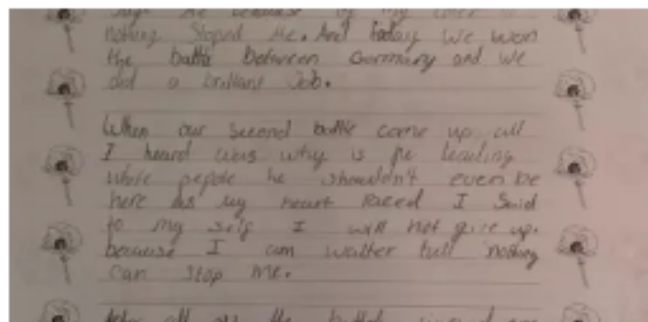 because of my
nothing Stoped Me. And today we won
the battle between Germany and we
did a brilliant Job.
When our second battle came up all
I heard was why is he leading
white pepole he shouldn't even be
here as my heart raced I Said
to my self I will not give up.
because I am walter tull nothing
can stop me.
all of the